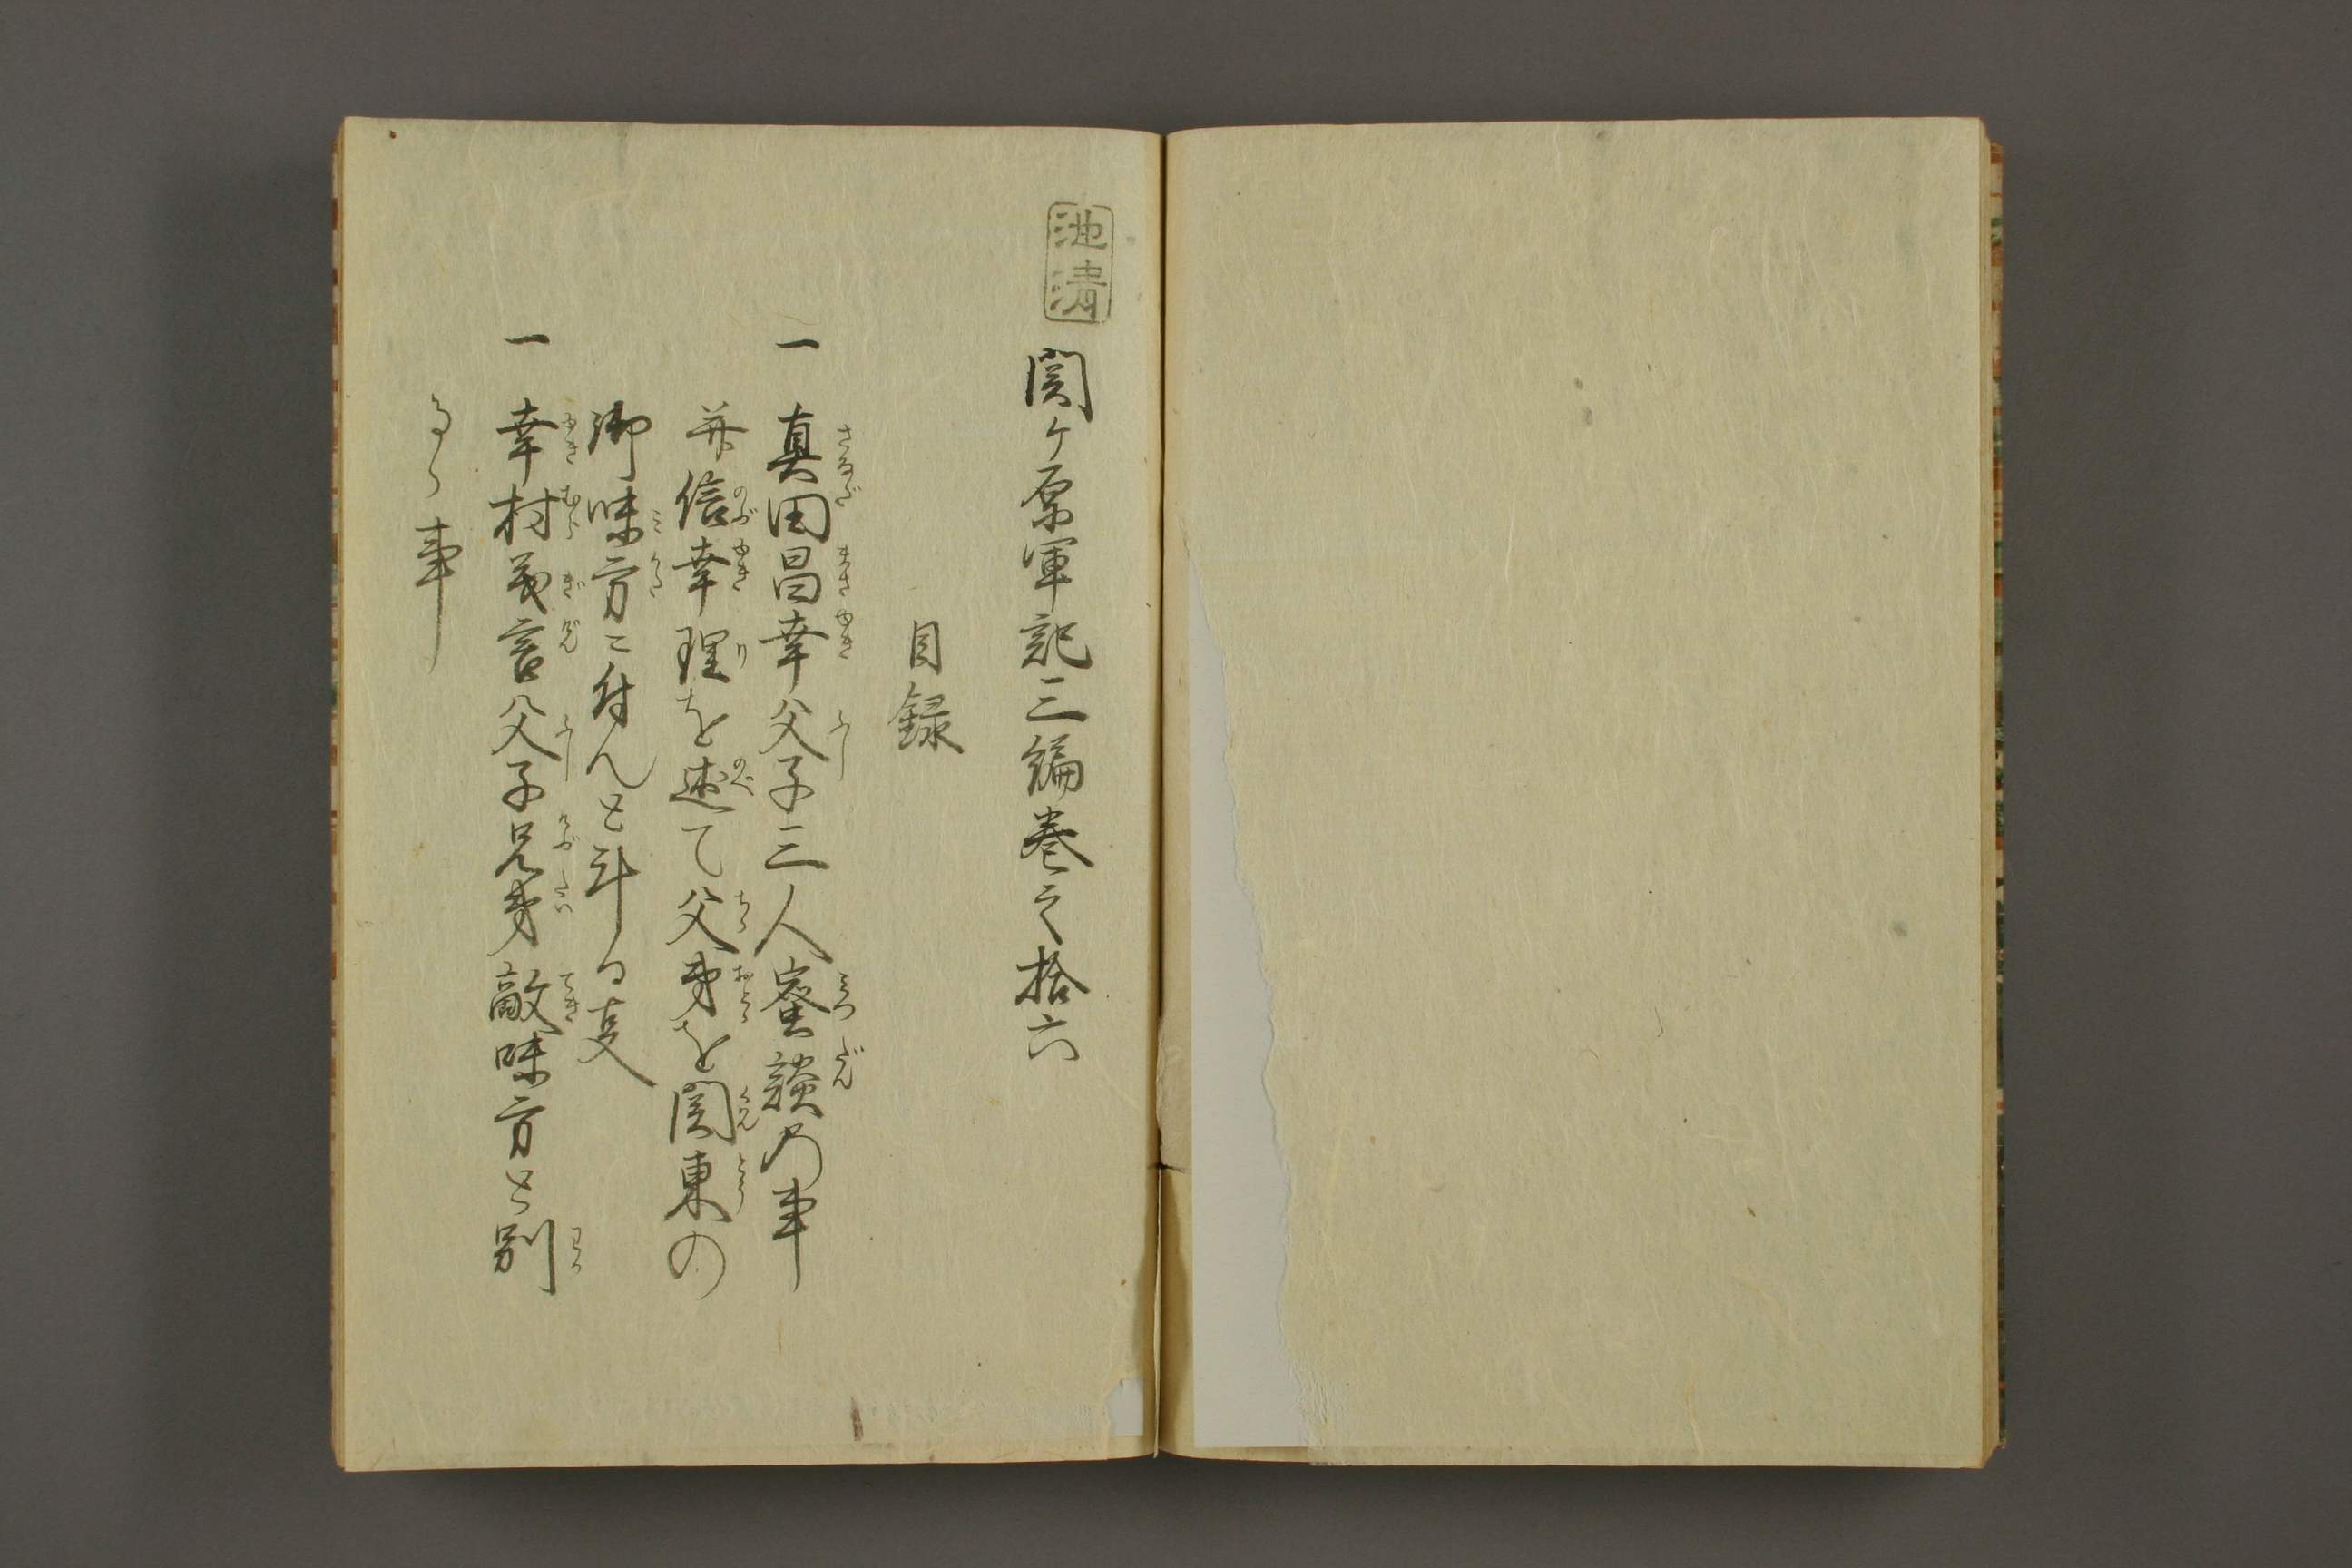 池清
関ヶ原軍記三編巻之拾六
目録
一 真田昌幸父子三人蜜談乃事
并信幸理を述て父弟を関東の
御味方ニ付んと斗る叓
一 幸村義言父子兄弟敵味方と別
るゝ事